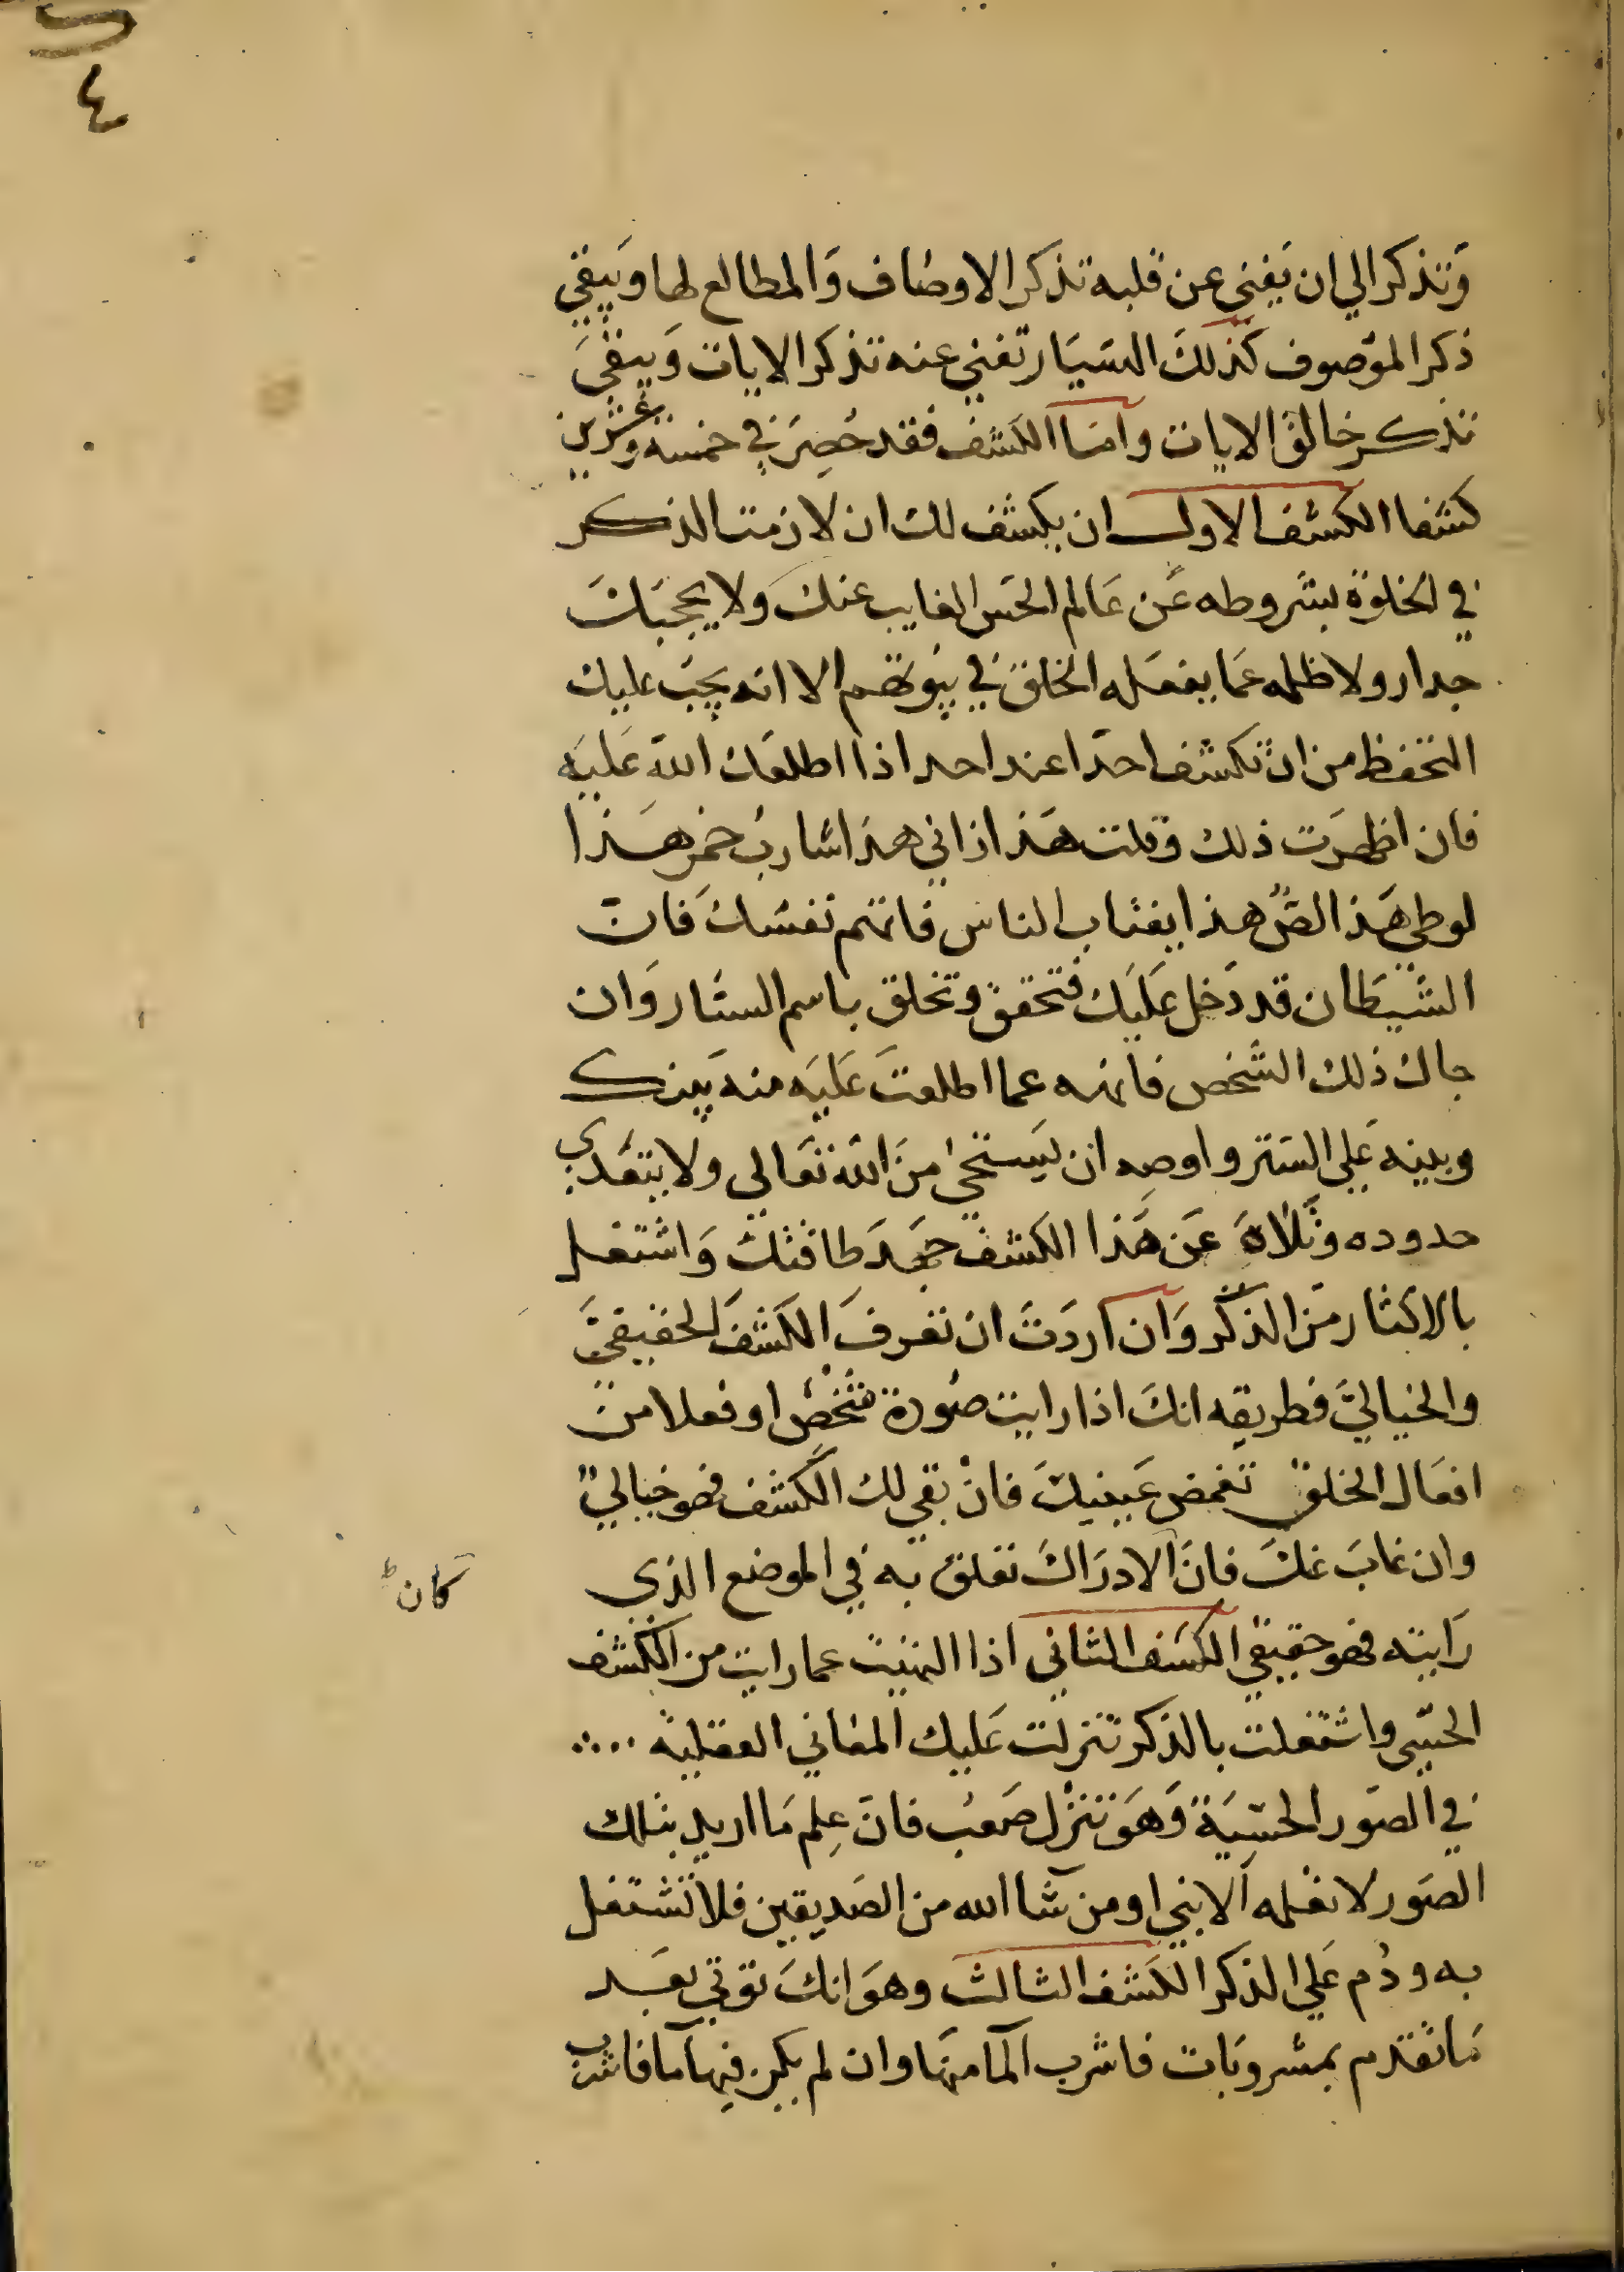 ٤
وتذكر الي ان يفني عن قلبه تذكر الاوصاف والمطالع لها ويبقي
ذكر الموصوف كذلك السيار تفني عنه تذكر الايات ويبقي
تذكر خالق الايات واما الكشف فقد حصر في خمسة وعشرين
كشفا الكشف الاول ان يكشف لك ان لازمت الذكر
في الخلوة بشروطه عن عالم الحس الغايب عنك ولا يحجبك
جدار ولا ظلمه عما يفعله الخلق في بيوتهم الا انه يجب عليك
التحفظ من ان تكشف احدا عند احد اذا اطلعك الله عليه
فان اظهرت ذلك وقلت هذا زاني هذا شارب خمر هذا
لوطي هذا لص هذا يغتاب الناس فاتهم نفسك فان
الشيطان قد دخل عليك فتحقق وتخلق باسم الستار وان
جاك ذلك الشخص فانهه عما اطلعت عليه منه بينك
وبينه علي الستر واوصه ان يستحي من الله تعالي ولا يتعدي
حدوده وتلاه عن هذا الكشف جهد طاقتك واشتغل
بالاكثار من الذكر وان اردت ان تعرف الكشف الحقيقي
والخيالي فطريقه انك اذا رايت صورة شخص او فعلا من
افعال الخلق تغمض عينيك فان بقي لك الكشف فهو خيالي
وان غاب عنك فان الادراك تعلق به في الموضع الذي
كان
رايته فهو حقيقي الكشف الثاني اذا التهيت عما رايت من الكشف
الحسي واشتغلت بالذكر تنزلت عليك المعاني العقلية
في الصور الحسية وهو تنزل صعب فان علم ما اريد بتلك
الصور لا تعلمه الا نبي او من شا الله من الصديقين فلا تشتغل
به ودم علي الذكر الكشف الثالث وهو انك توتي بعد
ما تقدم بمشروبات فاشرب الما منها وان لم يكن فيها ما فاشرب